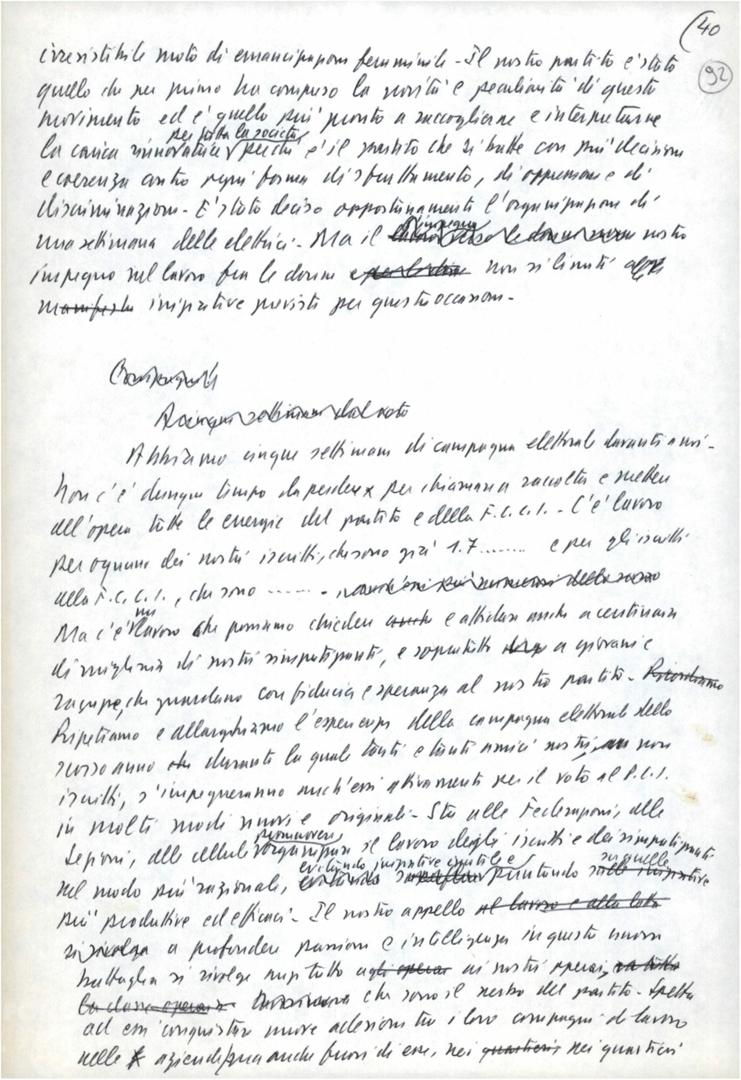 (40
92
irresistibile moto di emancipazione femminile - Il nostro partito è stato
quello che per primo ha compreso la novità e peculiarità di questo
movimento ed è quello più pronto a raccoglierne e interpretarne
per tutta la società
la carica rinnovatrice perché è il partito che si batte con più decisione
e coerenza contro ogni forma di sfruttamento, di oppressione e di
discriminazione - È stato deciso opportunamente l'organizzazione di
una settimana delle elettrici - Ma il nostro
impegno nel lavoro fra le donne non si limiti alle
manifesta iniziative previste per questa occasione -
Compagni
A cinque settimane dal voto
Abbiamo cinque settimane di campagna elettorale davanti a noi -
Non c'è dunque tempo da perdere per chiamare a raccolta e mettere
all'opera tutte le energie del partito e della F.G.C.I. - C'è lavoro
per ognuno dei nostri iscritti, che sono già 1.7........ e per gli iscritti
della F.G.C.I., che sono ...... -
Ma c'è un lavoro che possiamo chiedere anche e affidare anche a centinaia
di migliaia di nostri simpatizzanti, e soprattutto a giovani e
ragazze, che guardano con fiducia e speranza al nostro partito - Ricordiamo
Ripetiamo e allarghiamo l'esperienza della campagna elettorale dello
scorso anno che durante la quale tanti e tanti amici nostri, non
iscritti, s'impegneranno anch'essi attivamente per il voto al P.C.I.
in molti modi nuovi e originali - Sta alle Federazioni, alle
promuovere
Sezioni, alle cellule organizzare il lavoro degli iscritti e dei simpatizzanti
evitando iniziative e su quelle
nel modo più razionale, evitando puntando sulle iniziative
più produttive ed efficaci - Il nostro appello al lavoro e alla lotta
si rivolge a profondere passione e intelligenza in questa nuova
battaglia si rivolge anzitutto agli operai ai nostri operai,
la classe operaia che sono il nerbo del partito - Spetta
ad essi conquistare nuove adesioni tra i loro compagni di lavoro
nelle aziende, ma anche fuori di esse, nei quartieri nei quartieri